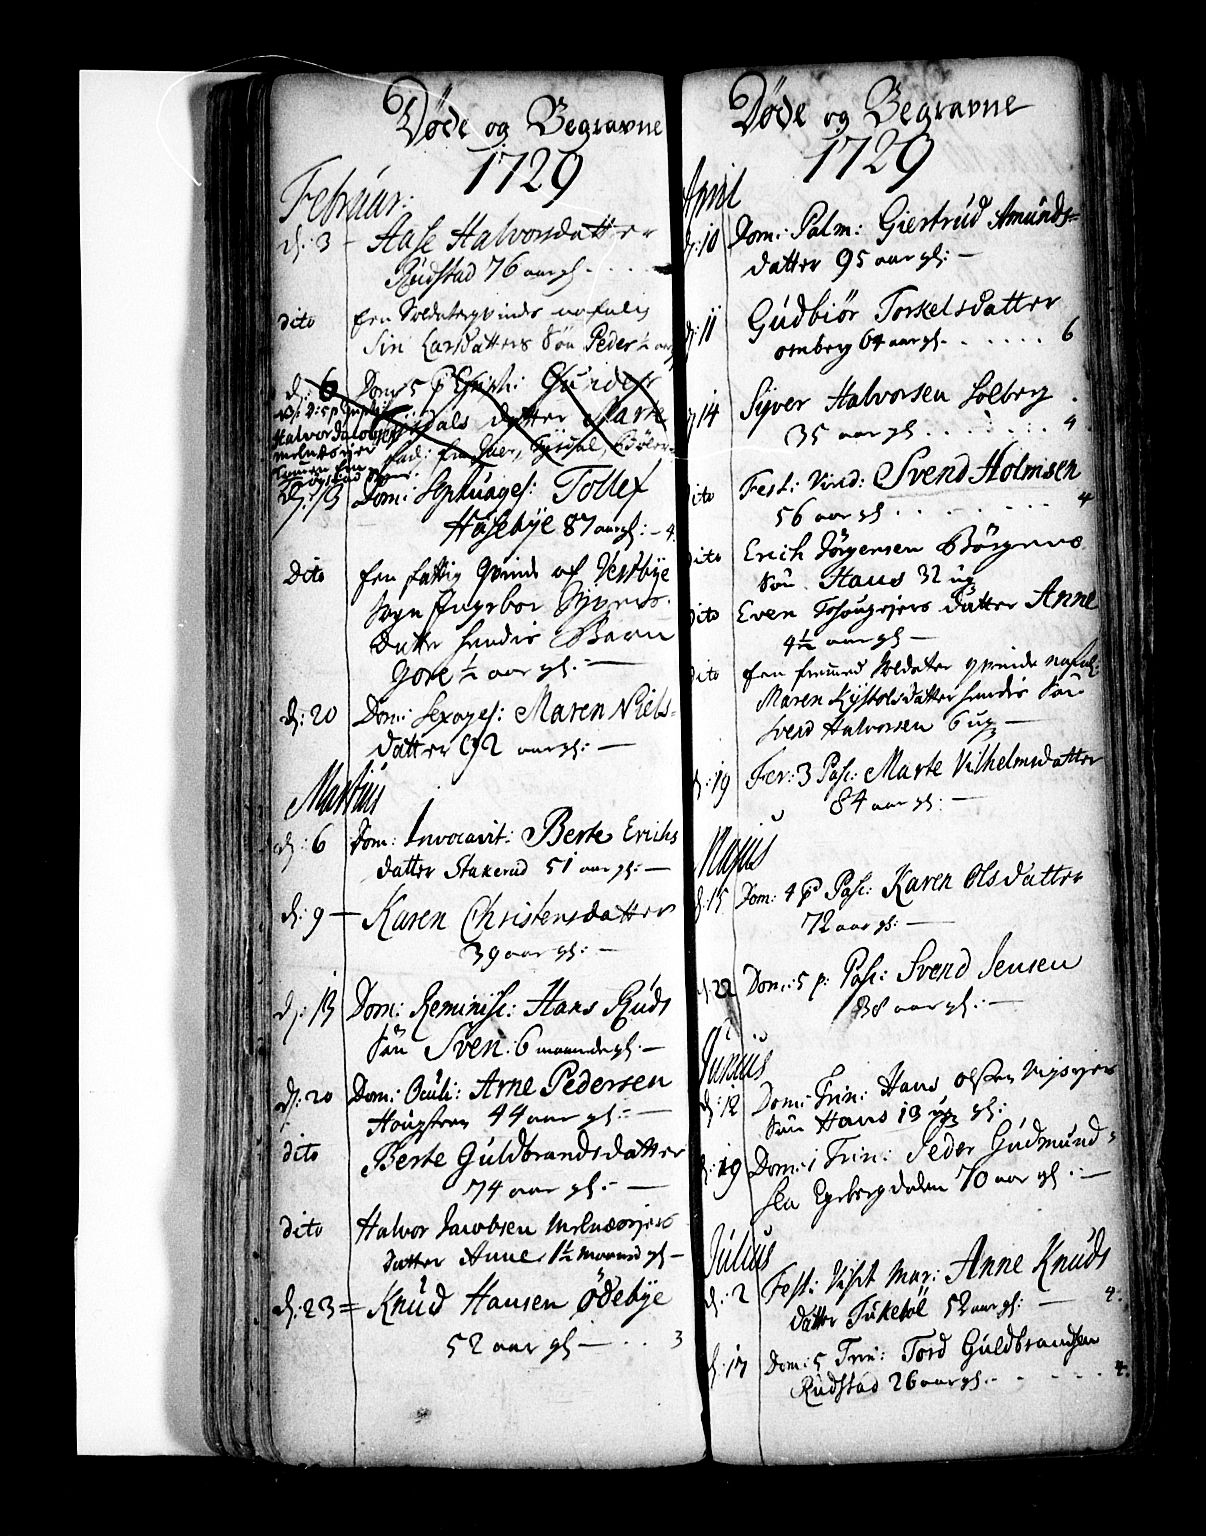 Døde og Begravne
1729
Februar:
d: 3 Aase Halvorsdatter
Rudstad 76 aar gl.
dito En Soldaterqvinde
Siri Larsdatters Søn Peder ½ aar
d: 6 Dom 5 p Epiph:
datter Marte
Halvor Jacobsen
d: 13 Dom: Septuages: Tollef
Hasebye 87 aar gl: - 4.
Dito En fattig qvinde af Vestbye
Sogn Ingebor
Datter hendis Barn
Gore ½ aar gl. —
d: 20 Dom: Sexages: Maren Niels-
datter 92 aar gl: —
Martius
d: 6 Dom: Invocavit: Berte Erichs
datter Stakerud 51 aar gl: —
d: 9 — Karen Christensdatter
39 aar gl: —
d: 13 Dom: Reminisc: Hans Ruds
Søn Sven. 6 maander gl. —
d: 20 Dom: Oculi: Arne Pedersen
Hougsteen 44 aar gl: —
dito Berte Guldbrandsdatter
74 aar gl: —
dito Halvor Jacobsen
datter Anne 1½ maaned gl —
d: 23 = Knud Hansen Ødebye
52 aar gl — . . 3
Døde og Begravne
1729
April
d: 10 Dom: Palm: Giertrud Amunds-
datter 95 aar gl: —
d: 11 Gudbiør Torkelsdatter
omberg 64 aar gl. . . . . . . 6
d: 14 Siver Halvorsen Solberg .
35 aar gl . . . . . . . 4
dito Fest: Virid: Svend Holmsen
56 aar gl . . . . . . . 4
dito Erich Jørgensen
Søn. Hans 32 ug
dito Even datter Anne
4½ aar gl —
dito En fremmed Soldater qvinde
Maren hendis Søn
Svend Halvorsen 6 ug —
d: 19 Fer: 3 Pasc: Marte Vilhelmsdatter
84 aar gl: —
Majus
d: 15 Dom: 4 p Pasc: Karen Olsdatter
72 aar gl: —
d: 22 Dom: 5 p: Pasc: Svend Jensen
38 aar gl: —
Junius
d: 12 Dom: Trin: Hans Olsen
Søn Hans 13 ug gl:
d: 19 Dom: 1 Trin: Peder Gudmund-
sen Egebergdalen 70 aar gl: —
Julius
d: 2 Fest: Visit Mar: Anne Knuds
datter 52 aar gl: — 4.
d: 17 Dom: 5 Trin: Tord Guldbrandsen
Rudstad 26 aar gl. . . . . . 4.